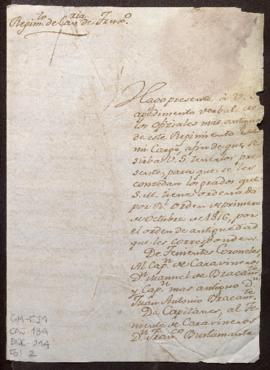 to ria
Regim. de Cav. de Fern.
Hago presente à V. S.
apedimento verbal de
los Oficiales mas antiguos
de este Regimiento
mi Cargo, afin de que se
sirba V. S. tenerlos pre-
sente, para que se les
concedan los grados que
S. M. tiene ordenado
por Rl. Orden de primero
de Octubre de 1816, por
el orden de antiguedad
que les corresponde.
De Tenientes Coroneles
Al Capn. de Caravineros
Dn. Manuel de Bracam
y Capn. mas antiguo Dn.
Juan Antonio Bracam
De Capitanes, al Te-
niente de Caravineros
Dn. Franco. Bustamante
CAJ 189
DOC 214
fol 2